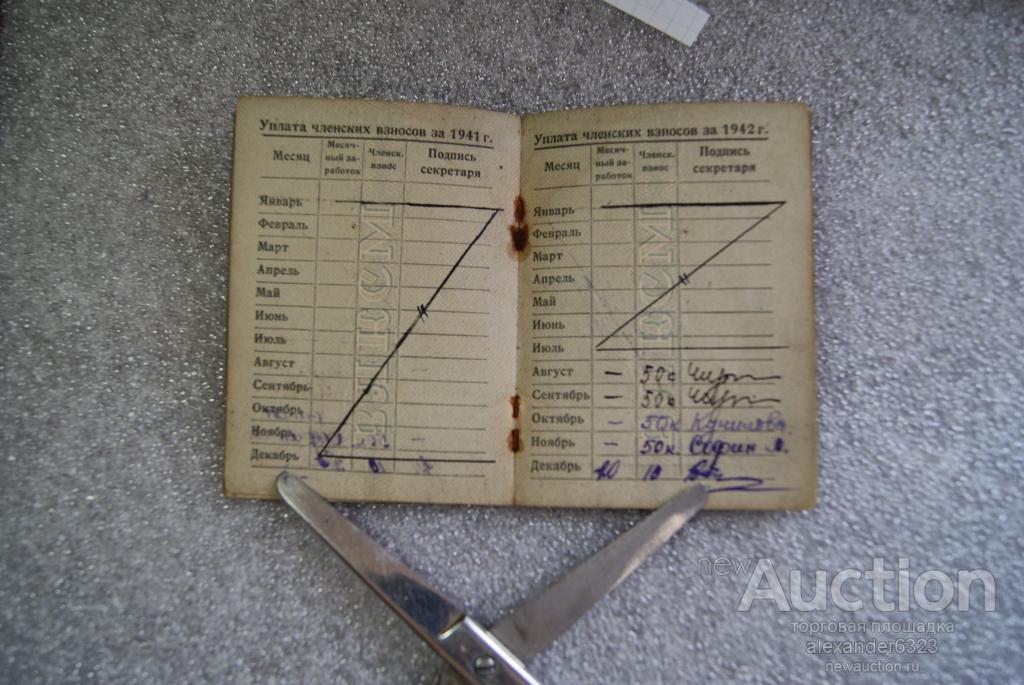 Уплата членских взносов за 1941 г.
Месяц
Месяч-
ный за-
работок
Членск.
взнос
Подпись
секретаря
Январь
Февраль
Март
Апрель
Май
Июнь
Июль
Август
Сентябрь
Октябрь
Ноябрь
Декабрь
ВЛКСМ
Уплата членских взносов за 1942 г.
Месяц
Месяч-
ный за-
работок
Членск.
взнос
Подпись
секретаря
Январь
Февраль
Март
Апрель
Май
Июнь
Июль
Август — 50к
Сентябрь — 50к
Октябрь — 50к
Ноябрь — 50к. Софин
Декабрь 10
ВЛКСМ
newAuction
торговая площадка
alexander6323
newauction.ru